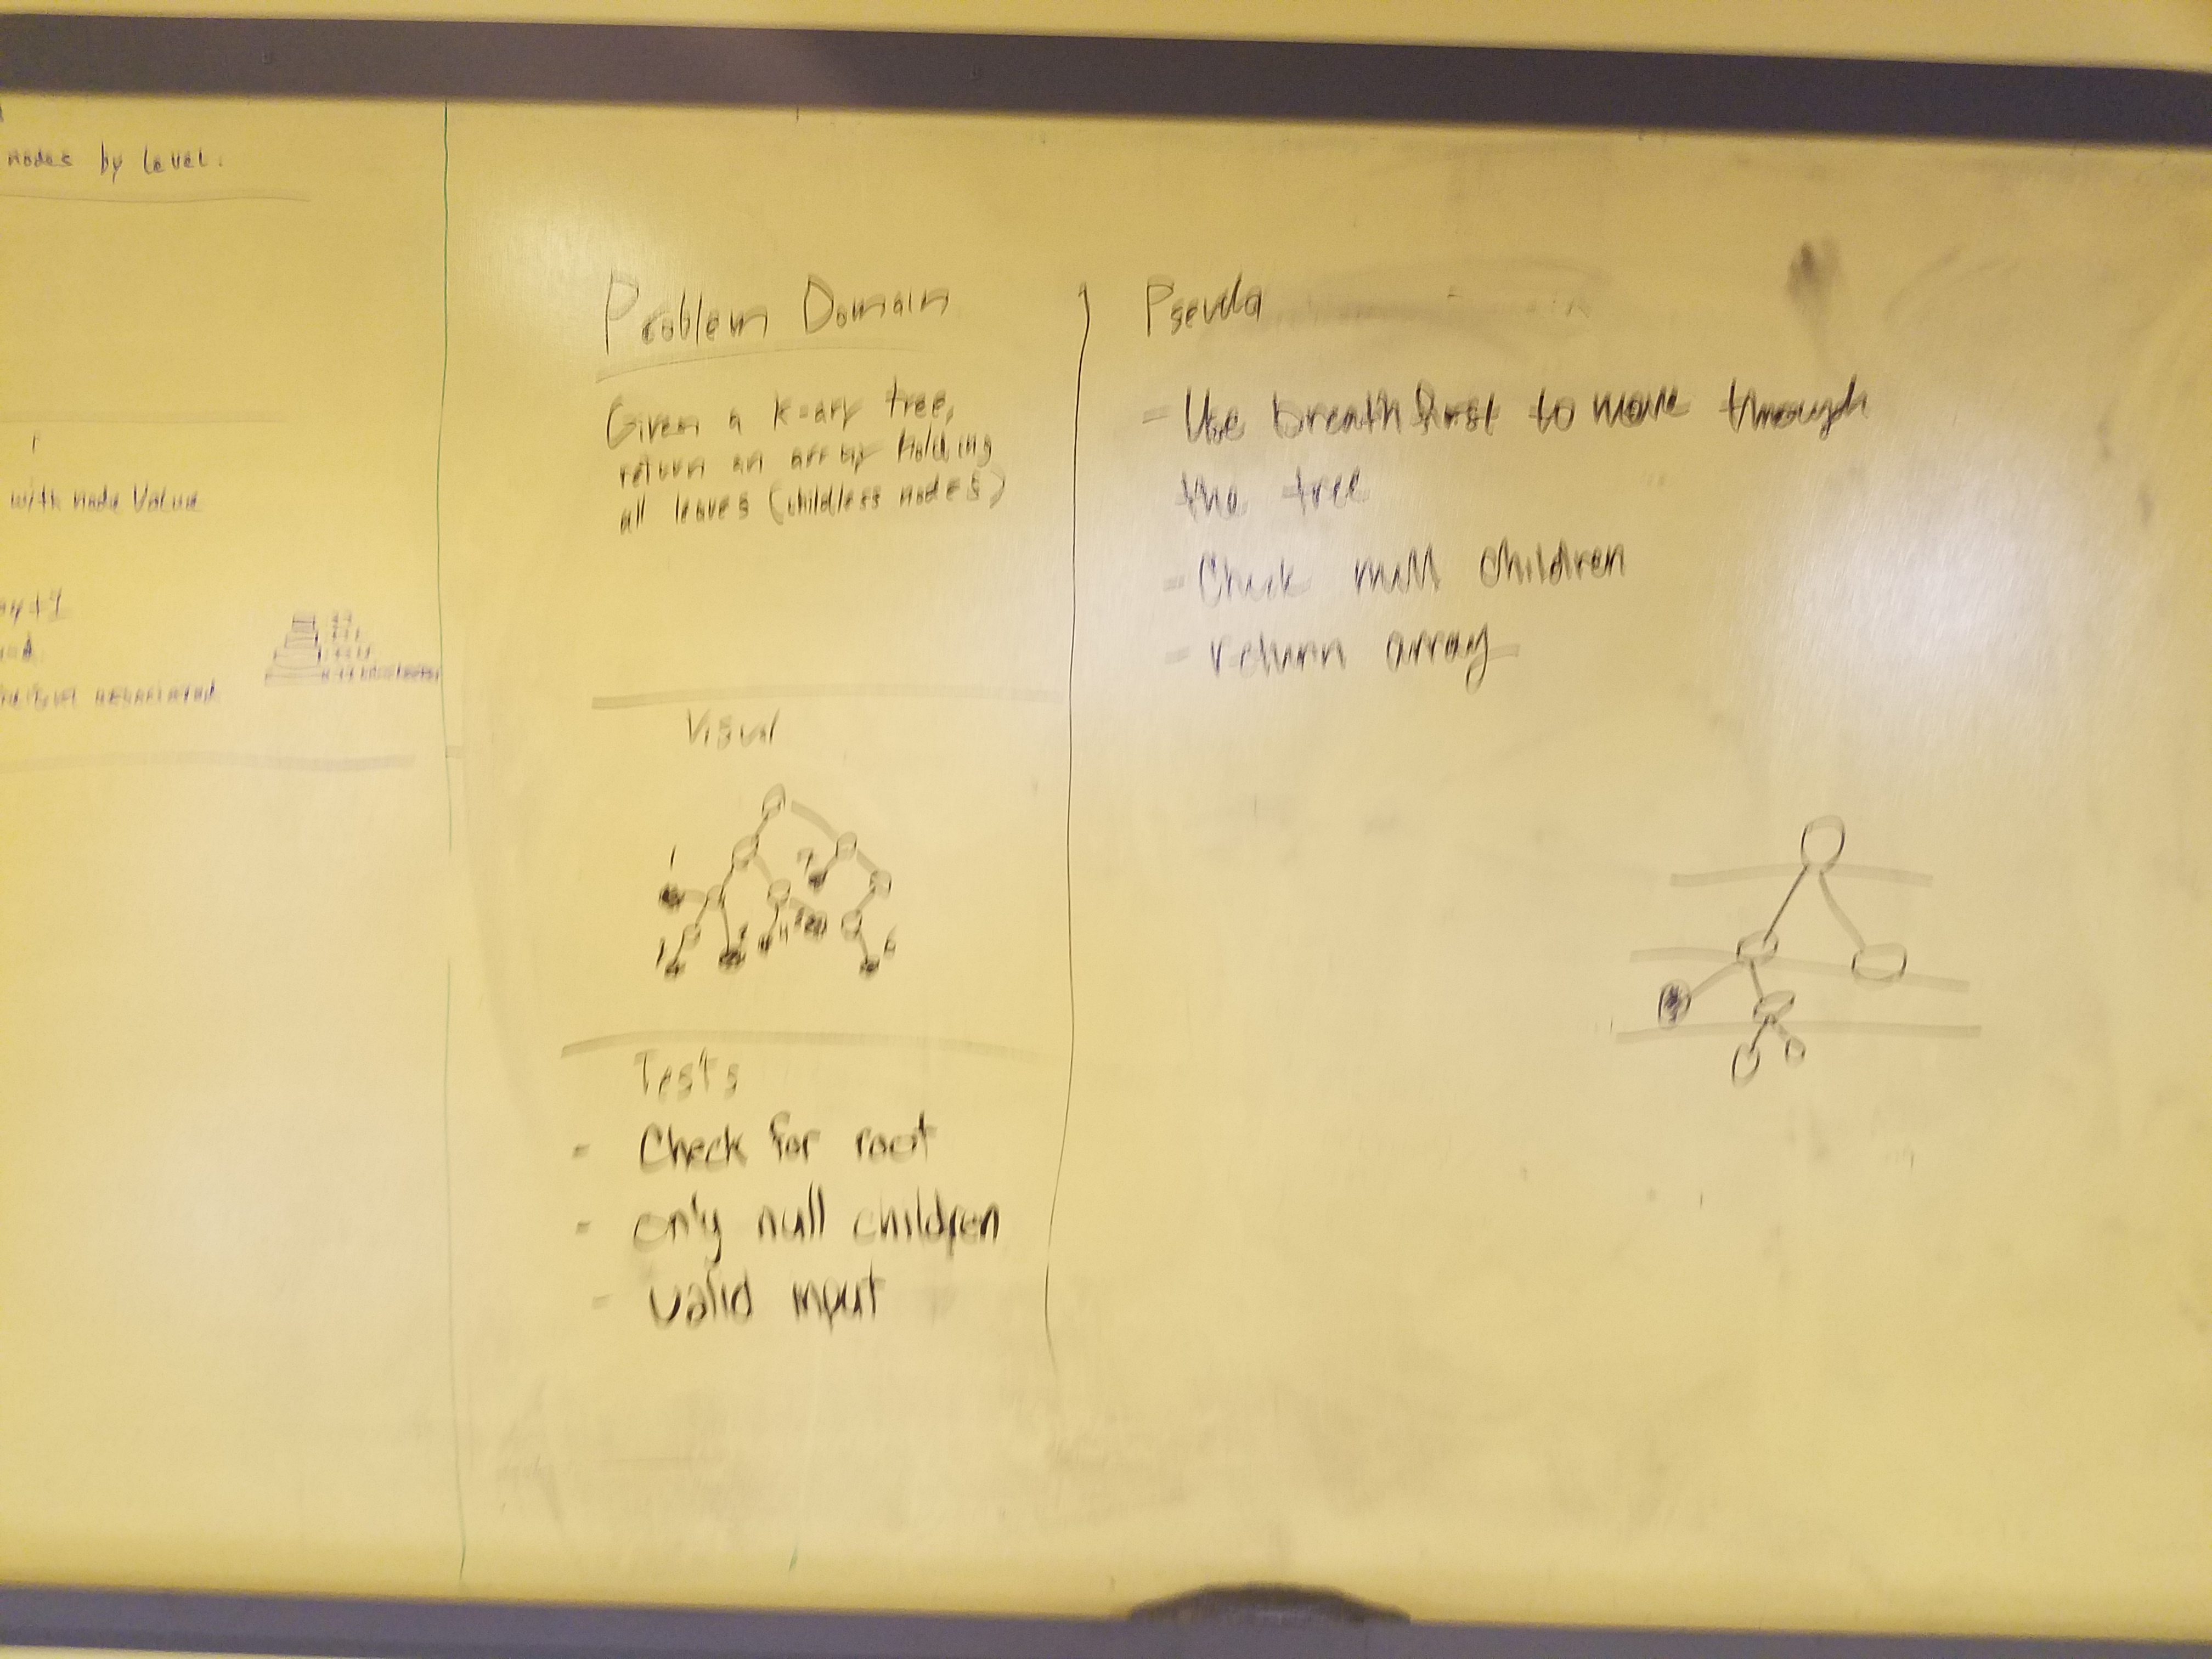 nodes by level.
with node value
Problem Domain
Given a k-ary tree,
return an array holding
all leaves (childless nodes)
Visual
1
7
4
6
Tests
- Check for root
- only null children
- valid input
Pseudo
- Use breath first to move through
the tree
- Check null children
- return array